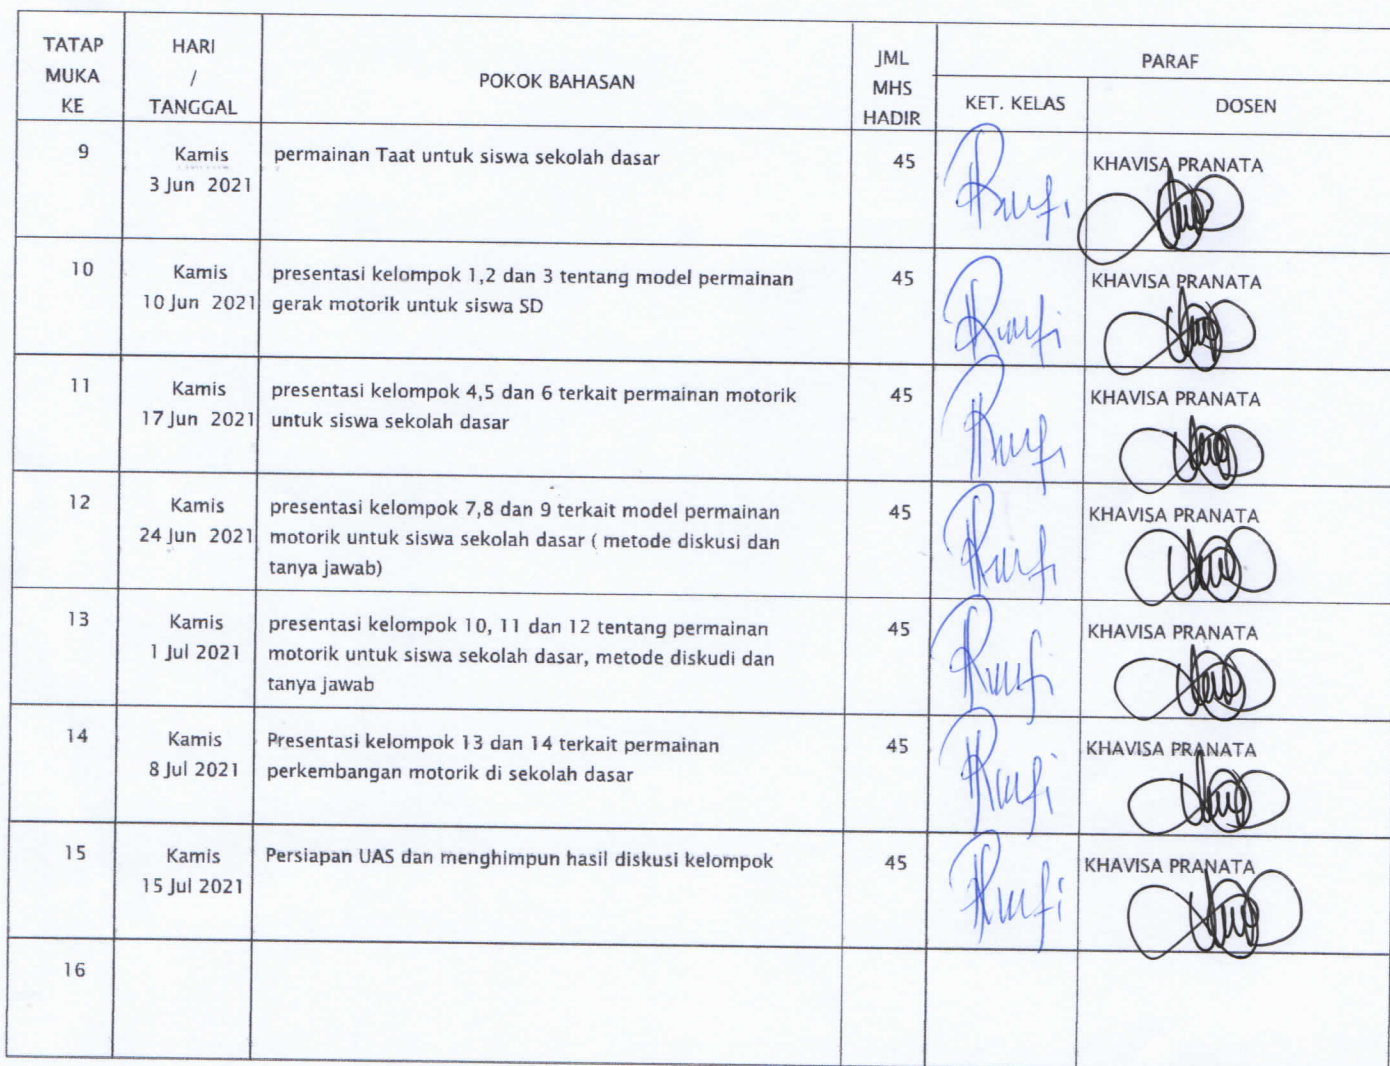 TATAP
MUKA
KE
HARI
/
TANGGAL
POKOK BAHASAN
JML
MHS
HADIR
PARAF
KET. KELAS
DOSEN
9
Kamis
3 Jun 2021
permainan Taat untuk siswa sekolah dasar
45
KHAVISA PRANATA
10
Kamis
10 Jun 2021
presentasi kelompok 1,2 dan 3 tentang model permainan
gerak motorik untuk siswa SD
45
KHAVISA PRANATA
11
Kamis
17 Jun 2021
presentasi kelompok 4,5 dan 6 terkait permainan motorik
untuk siswa sekolah dasar
45
KHAVISA PRANATA
12
Kamis
24 Jun 2021
presentasi kelompok 7,8 dan 9 terkait model permainan
motorik untuk siswa sekolah dasar ( metode diskusi dan
tanya jawab)
45
KHAVISA PRANATA
13
Kamis
1 Jul 2021
presentasi kelompok 10, 11 dan 12 tentang permainan
motorik untuk siswa sekolah dasar, metode diskudi dan
tanya jawab
45
KHAVISA PRANATA
14
Kamis
8 Jul 2021
Presentasi kelompok 13 dan 14 terkait permainan
perkembangan motorik di sekolah dasar
45
KHAVISA PRANATA
15
Kamis
15 Jul 2021
Persiapan UAS dan menghimpun hasil diskusi kelompok
45
KHAVISA PRANATA
16